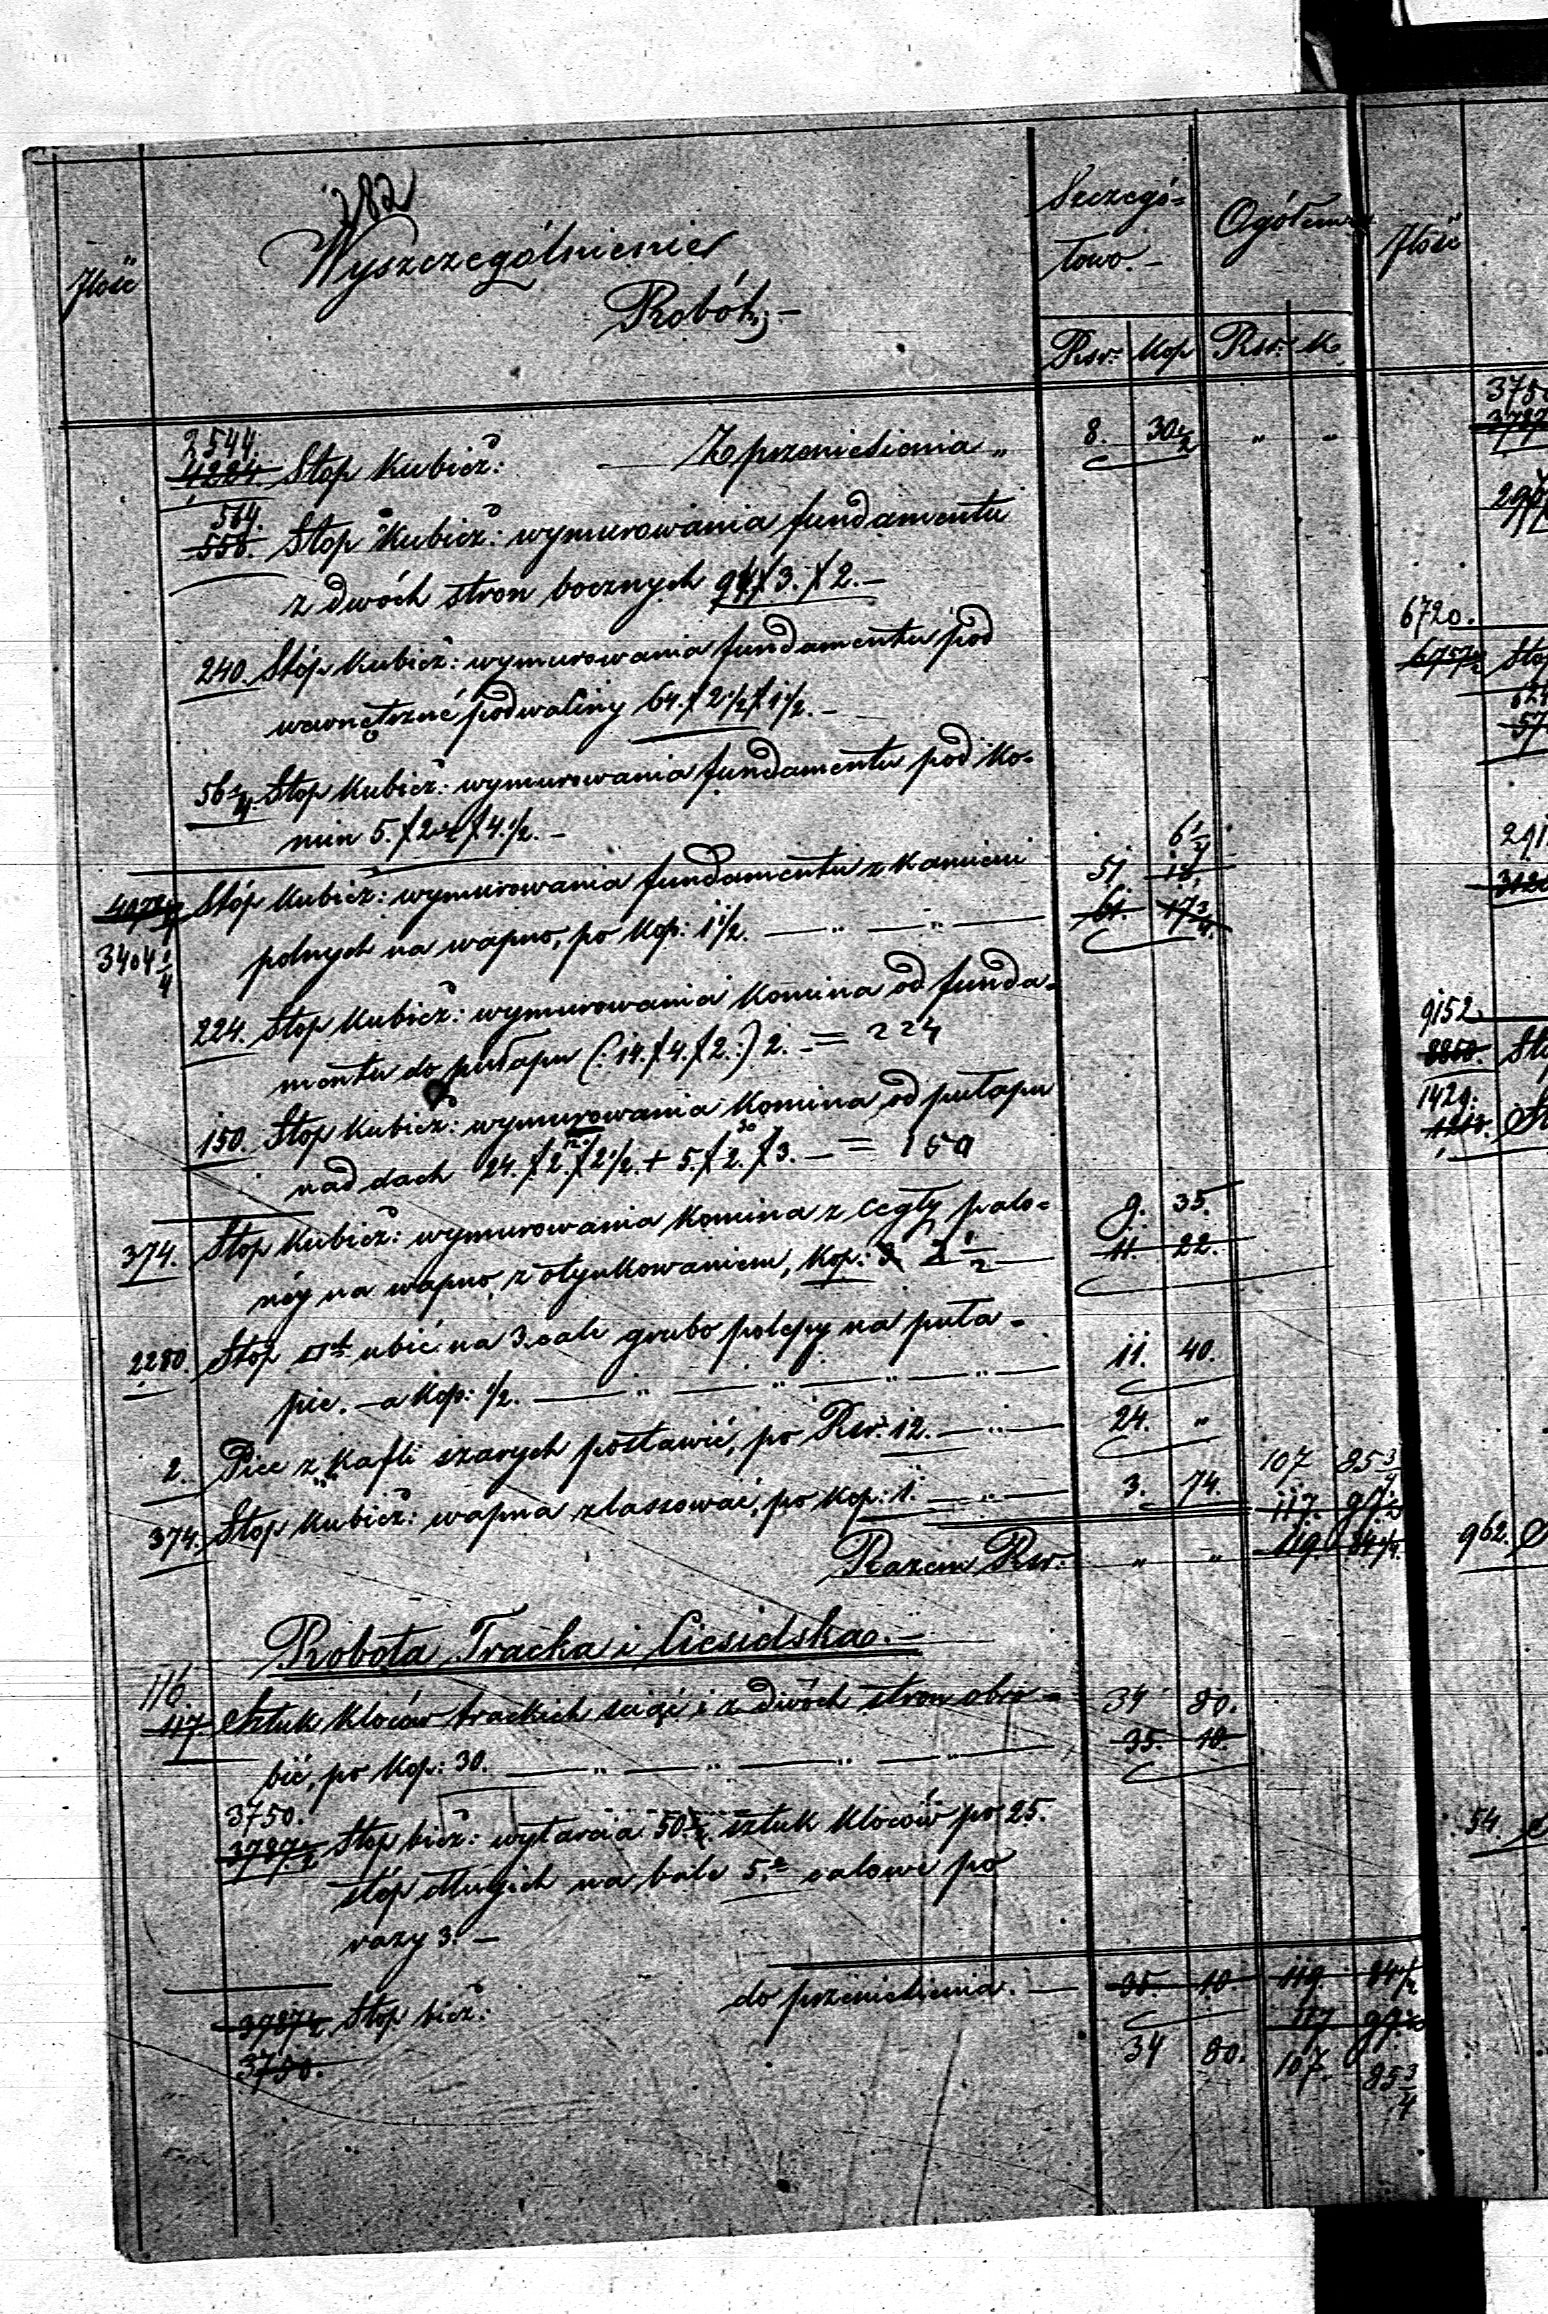 282
Ilość
Wyszczególnienie
Robót,-
Szczegó-
łowo.-
Ogółem
Ilość
Rsr. Kop Rsr. K.
2544.
4204. Stop Kubicz: Z przeniesienia „ 8. 30 1/2 „ „
564.
558. Stop Kubicz: wymurowania fundamentu
z dwóch stron bocznych 94 X 3. X 2.-
240. Stóp Kubicz: wymurowania fundamentu pod
wewnętrzné podwaliny 64. X 2 1/2 X 1 1/2.-
56 1/4 Stop Kubicz: wymurowania fundamentu pod Ko-
min 5. X 2 1/2 X 4 1/2.-
Stóp Kubicz: wymurowania fundamentu z Kamieni 51 6 1/4
3404 1/4 polnych na wapno, po Kop: 1 1/2. 61. 17 3/4
224. Stop Kubicz: wymurowania Komina od funda-
mentu do pułapu (: 14. X 4. X 2. :) 2. - = 224
150. Stop Kubicz: wymurowania Komina od pułapu
nad dach 24. X 2. X 2 1/2. + 5. X 2. X 3. - = 150
374. Stop Kubicz: wymurowania Komina z cegły palo- 9. 35.
néy na wapno, z otynkowaniem, Kop: 2 1/2 11. 22.
2280. Stóp ubić na 3. cale grubo polepy na puła-
pie. - a Kop: 1/2. 11. 40.
2. Piec z kafli szarych postawić, po Rsr: 12. 24. „
374. Stop Kubicz: wapna zlasować, po Kop: 1. 3. 74. 107 85 3/4
117. 97 1/2
Razem Rsr. „ „ 119. 84 1/4
Robota Tracka i Ciesielska.-
116.
117. Sztuk Kloców trackich ściąć i z dwóch stron obro- 34 80.
bić, po Kop: 30. 35. 10.
3750.
3787 1/2 Stop bież: wytarcia 50 1/2 sztuk Kloców po 25.
stóp długich na bale 5. calowe po
razy 3.-
do przeniesienia. 35. 10. 119 84 1/4
3787 1/2 Stop bież: 117 97 1/2
3750. 34 80. 107. 85 3/4
6720.
9152.
8850.
1420.
962.
54.